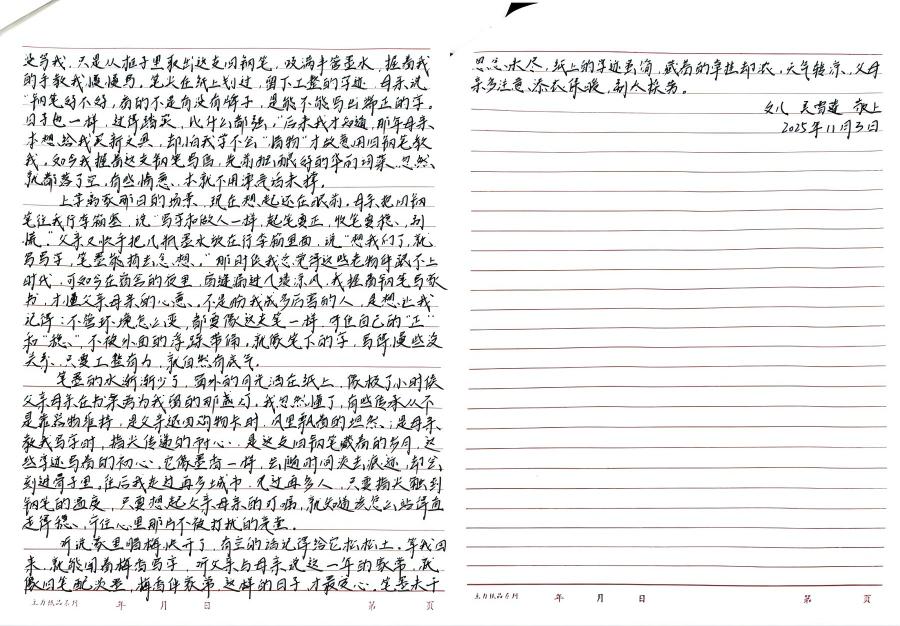 没骂我，只是从柜子里取出这支旧钢笔，吸满半管墨水，握着我
的手教我慢慢写，笔尖在纸上划过，留下工整的字迹，母亲说
"钢笔好不好，看的不是有没有牌子，是能不能写出端正的字。
日子也一样，过得踏实，比什么都强，"后来我才知道，那年母亲
本想给我买新文具，却怕我学不会"惜物"才故意用旧钢笔教
我。如今我握着这支钢笔写信，先前担心的华丽词藻，忽然
就都落了空，有些情意，本就不用漂亮话来撑。
上学离家那日的场景，现在想起还在眼前。母亲把旧钢
笔往我行李箱塞，说"写字和做人一样，起笔要正，收笔要稳，别
慌。"父亲又快手把几瓶墨水放在行李箱里面，说"想我们了，就
写写字，笔墨能捎去念想。"那时候我总觉得这些老物件跟不上
时代，可如今在宿舍的夜里，窗缝漏过几缕凉风，我握着钢笔写家
书，才懂父亲母亲的心意。不是盼我成多厉害的人，是想让我
记得：不管环境怎么变，都要像这支笔一样，守住自己的"正"
和"稳"，不被外面的浮躁带偏，就像笔下的字，写得慢些没
关系，只要工整有力，就自然有底气。
笔里的水渐渐少了，窗外的月光洒在纸上，像极了小时候
父亲母亲在书桌旁为我留的那盏灯。我忽然懂了，有些传承从不
是靠器物维持，是父亲退回购物卡时，风里飘着的坦然；是母亲
教我写字时，指尖传递的初心；是这支旧钢笔藏着的岁月，这
些字迹写着的初心。它像墨香一样，会随时间淡去痕迹，却会
刻进骨子里，往后我走过再多城市，见过再多人，只要指尖触到
钢笔的温度，只要想起父亲母亲的叮嘱，就知道该怎么站得直
走得稳，守住心里那片不被打扰的清亮。
听说家里腊梅快开了，有空的话记得给它松松土。等我回
来，就能闻着梅香写字，听父亲与母亲说这一年的家常，就
像旧笔配淡墨，梅香伴家常，这样的日子，才最安心。笔墨未干
主力纸品系列 年 月 日 第 页
思念未尽，纸上的字迹虽简，藏着的牵挂却浓，天气转凉，父母
亲多注意添衣保暖，别太操劳。
女儿 吴雪莲 敬上
2025年11月3日
主力纸品系列 年 月 日 第 页